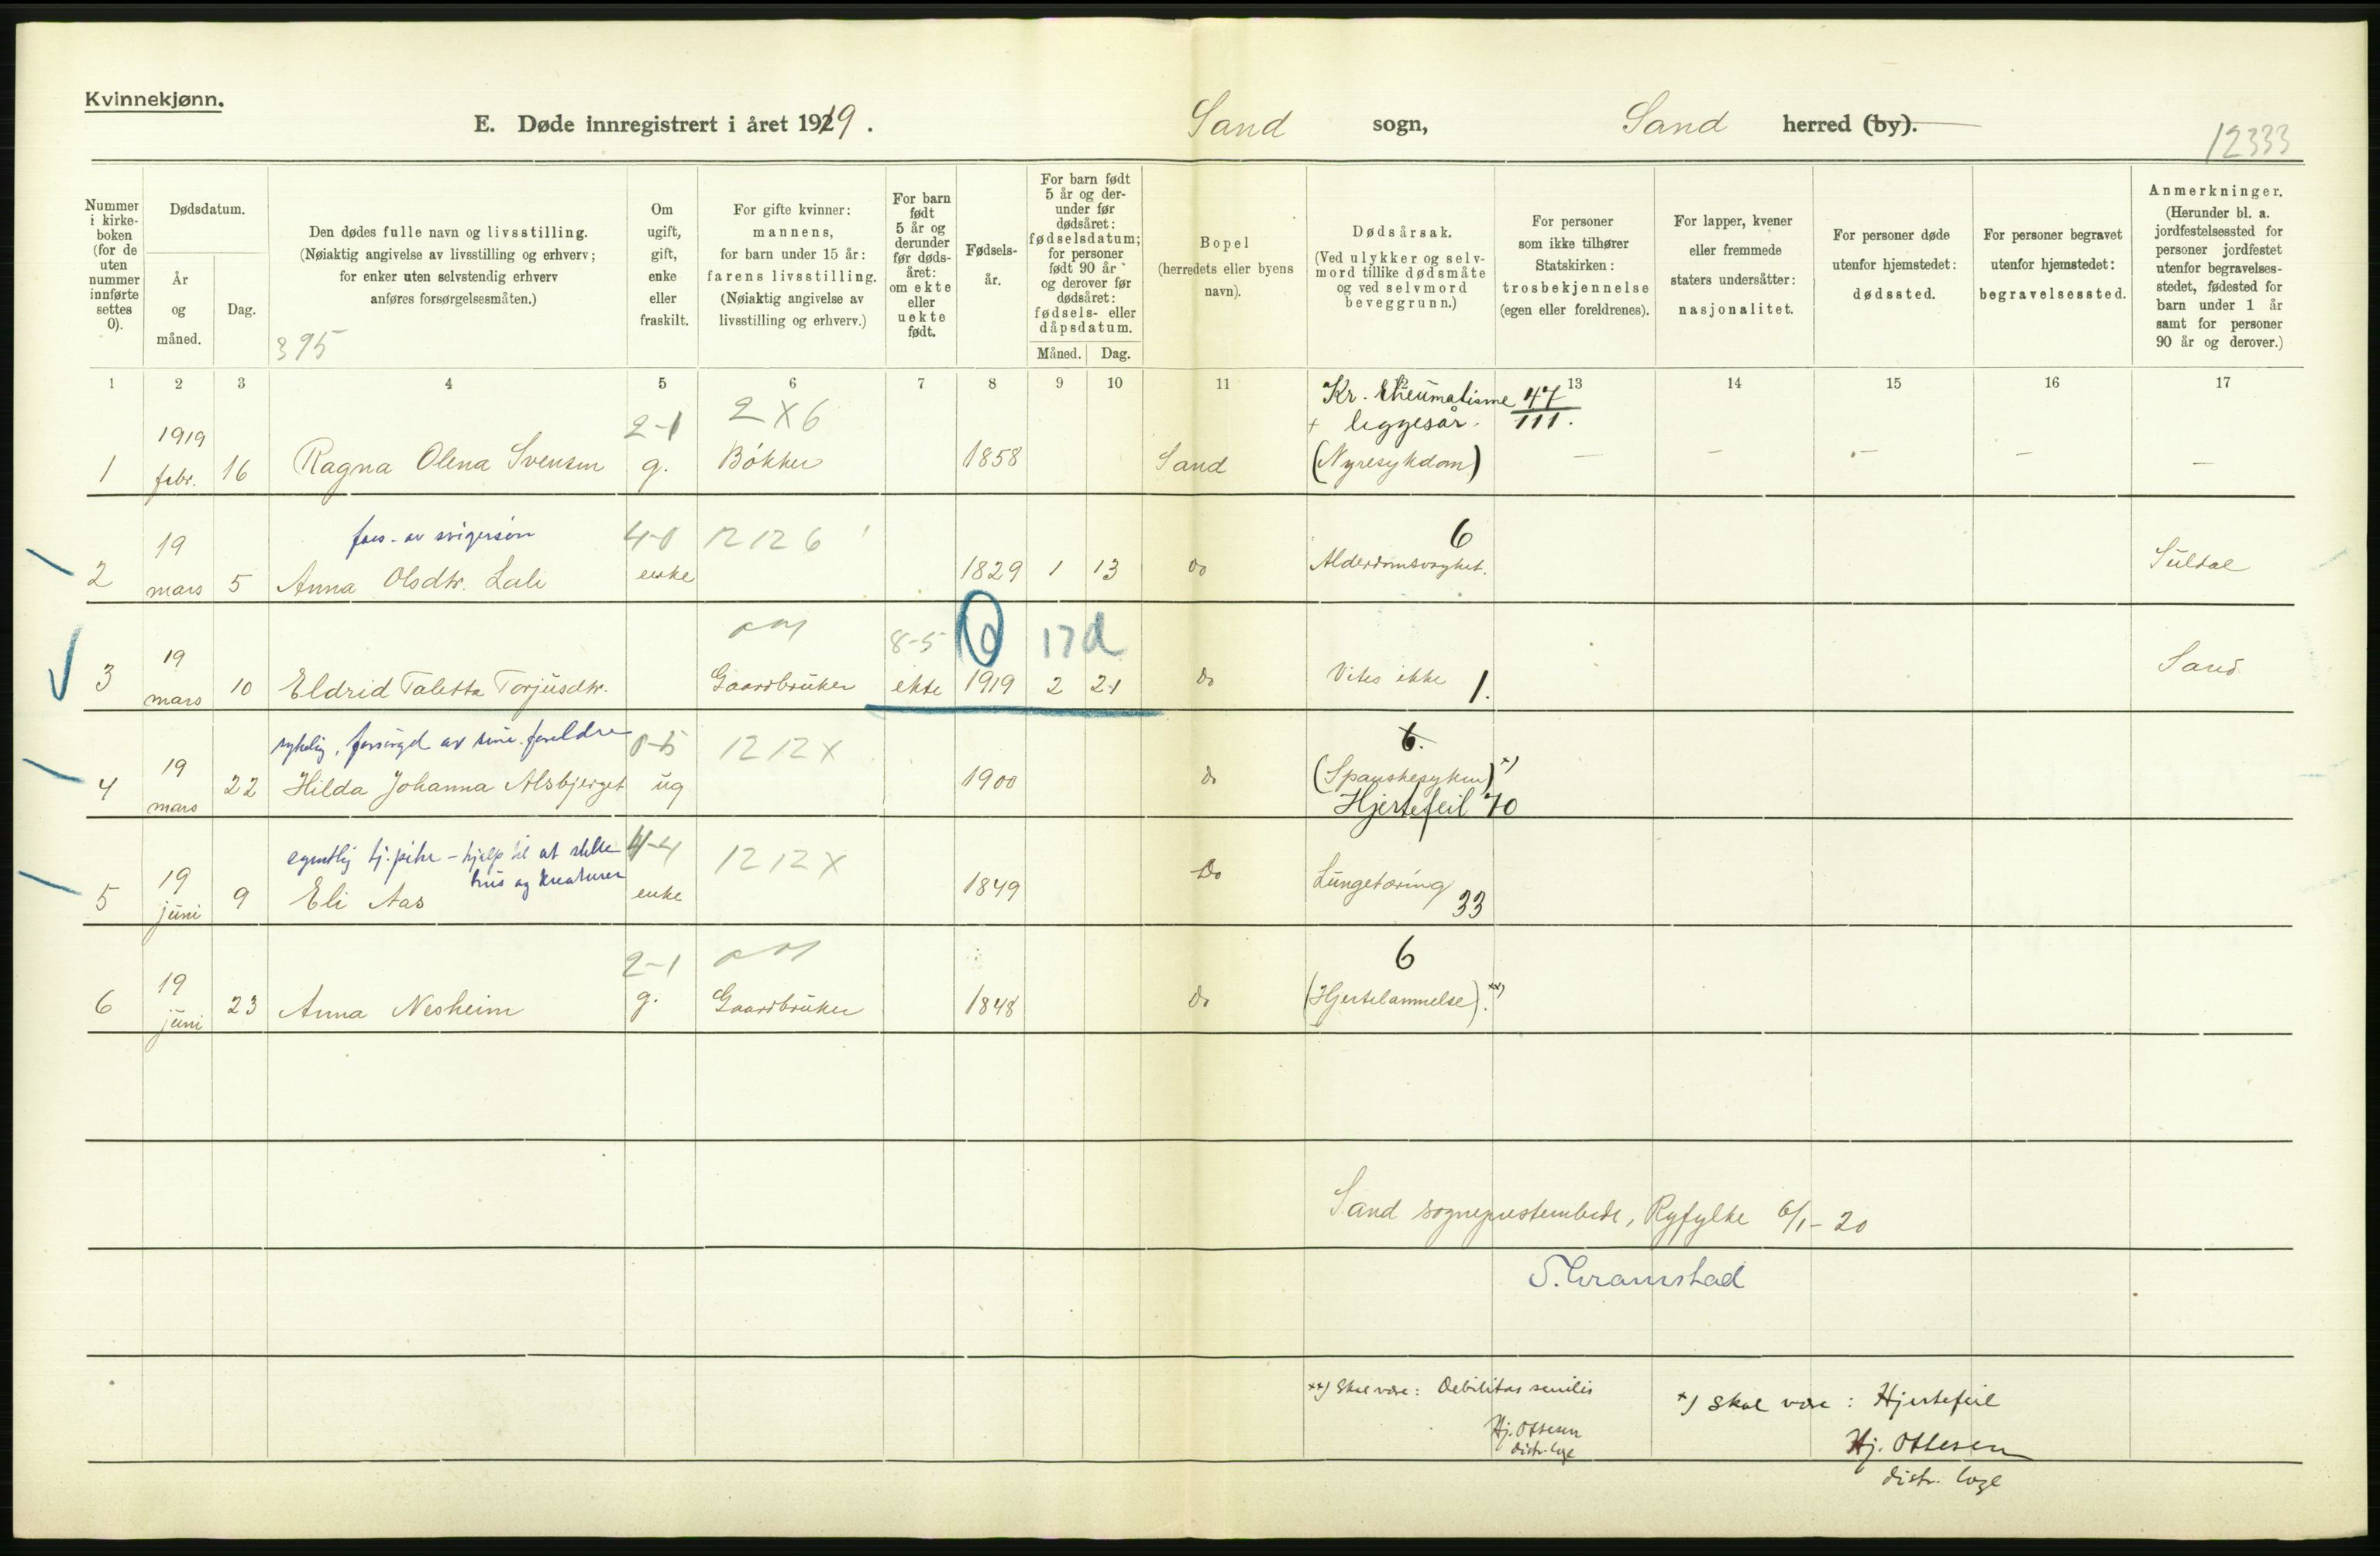 Kvinnekjønn.
E. Døde innregistrert i året 1919. Sand sogn, Sand herred (by).
12333
Nummer i kirke-boken (for de uten nummer innførte settes 0).
Dødsdatum.
År og måned.
Dag.
Den dødes fulle navn og livsstilling.
(Nøiaktig angivelse av livsstilling og erhverv;
for enker uten selvstendig erhverv
anføres forsørgelsesmåten.)
395
Om ugift, gift, enke eller fraskilt.
For gifte kvinner: mannens,
for barn under 15 år:
farens livsstilling.
(Nøiaktig angivelse av
livsstilling og erhverv.)
For barn født 5 år og derunder før døds-året: om ekte eller uekte født.
Fødsels-år.
For barn født 5 år og der-under før dødsåret: fødselsdatum; for personer født 90 år og derover før dødsåret: fødsels- eller dåpsdatum.
Måned. Dag.
Bopel
(herredets eller byens
navn).
Dødsårsak.
(Ved ulykker og selv-
mord tillike dødsmåte
og ved selvmord
beveggrunn.)
For personer
som ikke tilhører
Statskirken:
trosbekjennelse
(egen eller foreldrenes).
For lapper, kvener
eller fremmede
staters undersåtter:
nasjonalitet.
For personer døde
utenfor hjemstedet:
dødssted.
For personer begravet
utenfor hjemstedet:
begravelsessted.
Anmerkninger.
(Herunder bl. a.
jordfestelsessted for
personer jordfestet
utenfor begravelses-
stedet, fødested for
barn under 1 år
samt for personer
90 år og derover.)
1 2 3 4 5 6 7 8 9 10 11 12 13 14 15 16 17
2-1 2 X 6 Kr. Rheumatisme 47
1919 + liggesår. 111.
1 febr. 16 Ragna Olena Svensen g. Bøkker 1858 Sand (Nyresykdom) — — — — —
19 fors. av svigersøn 4-0 12 12 6 6
2 mars 5 Anna Olsdtr. Lali enke 1829 1 13 do Alderdomssvaghet. Suldal
19 8-5 17 d
3 mars 10 Eldrid Taletta Torjusdtr. Gaardbruker ekte 1919 2 21 do Vites ikke 1. Sand
sykelig, forsørget av sine foreldre 0-5 12 12 X 6.
19 (Spanskesyken) *)
4 mars 22 Hilda Johanna Alsbjerget ug 1900 do Hjertefeil 70
egentlig tj.pike - hjelp til at stelle 4-4 12 12 X
19 hus og kreaturer
5 juni 9 Eli Aas enke 1849 Do Lungetæring 33
19 2-1 6
6 juni 23 Anna Nesheim g. Gaardbruker 1848 do (Hjertelammelse). **)
Sand sogneprestembede, Ryfylke 6/1-20
**) Skal være: Debilitas senilis
Hj. Ottesen
distr. læge
*) Skal være: Hjertefeil
Hj. Ottesen
distr. læge